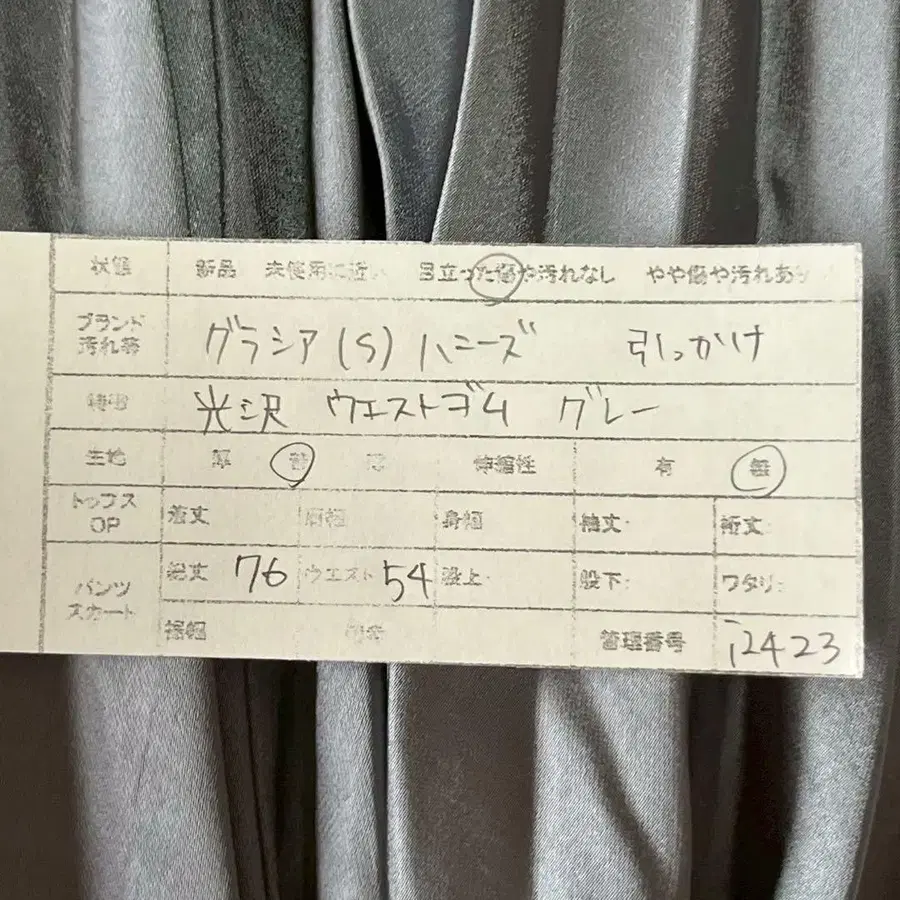 状態 新品 未使用に近い 目立った傷や汚れなし やや傷や汚れあり
ブランド 汚れ等 グラシア(S)ハニーズ 引っかけ
特徴 光沢 ウエストゴム グレー
生地 厚 普 薄 伸縮性 有 無
トップス OP 着丈 肩幅 身幅 袖丈 裄丈
パンツ スカート 総丈 76 ウエスト 54 股上 股下 ワタリ
裾幅 管理番号 i2423